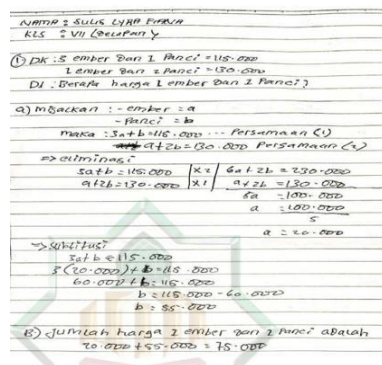 NAMA : SULIS LYRA FIRNA
KLS : VII (Delapan)
① DK : 3 ember Dan 1 Panci = 115.000
1 ember Dan 2 Panci = 130.000
DI : Berapa harga 1 ember Dan 1 Panci?
a) misalkan : - ember = a
- Panci = b
maka : 3a+b=115.000 ... Persamaan (1)
a+2b=130.000 Persamaan (2)
=> eliminasi
3a+b=115.000 | x2 | 6a+2b=230.000
a+2b=130.000 | x1 | a+2b=130.000
5a =100.000
a =100.000
5
a = 20.000
=> subtitusi
3a+b=115.000
3(20.000)+b=115.000
60.000+b=115.000
b=115.000-60.000
b=55.000
B) Jumlah harga 1 ember Dan 1 Panci aDalah
20.000+55.000=75.000